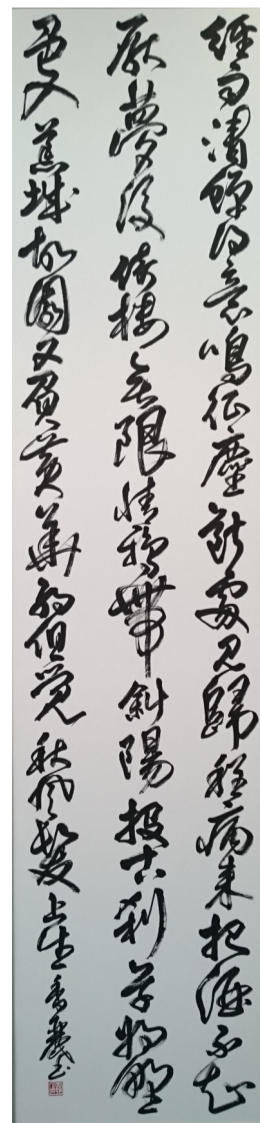 經雨清蟬得意鳴征塵斷處見歸程病來把酒不知
厭夢後倚樓無限情鴉帶斜陽投古剎草將野
色入蕪城故園又負黃華約但覺秋風髮上生